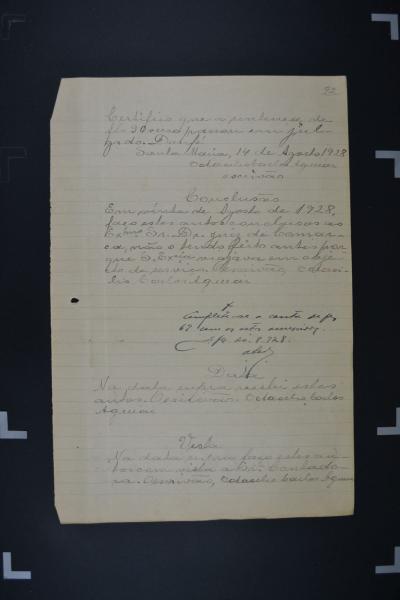 92
Certifico que a sentença de
fls 90 verso passou em jul-
gado. Dou fé.
Santa Maria, 14 de Agosto 1928
Octacilio Carlos Aguiar
escrivão
Conclusão
Em vinte de Agosto de 1928,
faço estes autos conclusos ao
Exmo Sr. Dr. juiz de Comar-
ca, não o tendo feito antes por
que S. Excia viajava em obje-
cto de serviço. O escrivão, Octaci-
lio Carlos Aguiar
a conta de fs
67 com os
8.928.
Data
Na data supra recebi estes
autos. O escrivão, Octacilio Carlos
Aguiar
Vista
Na data supra faço estes au-
tos com vista a Dr. Contado-
ra. O escrivão, Octacilio Carlos Aguiar